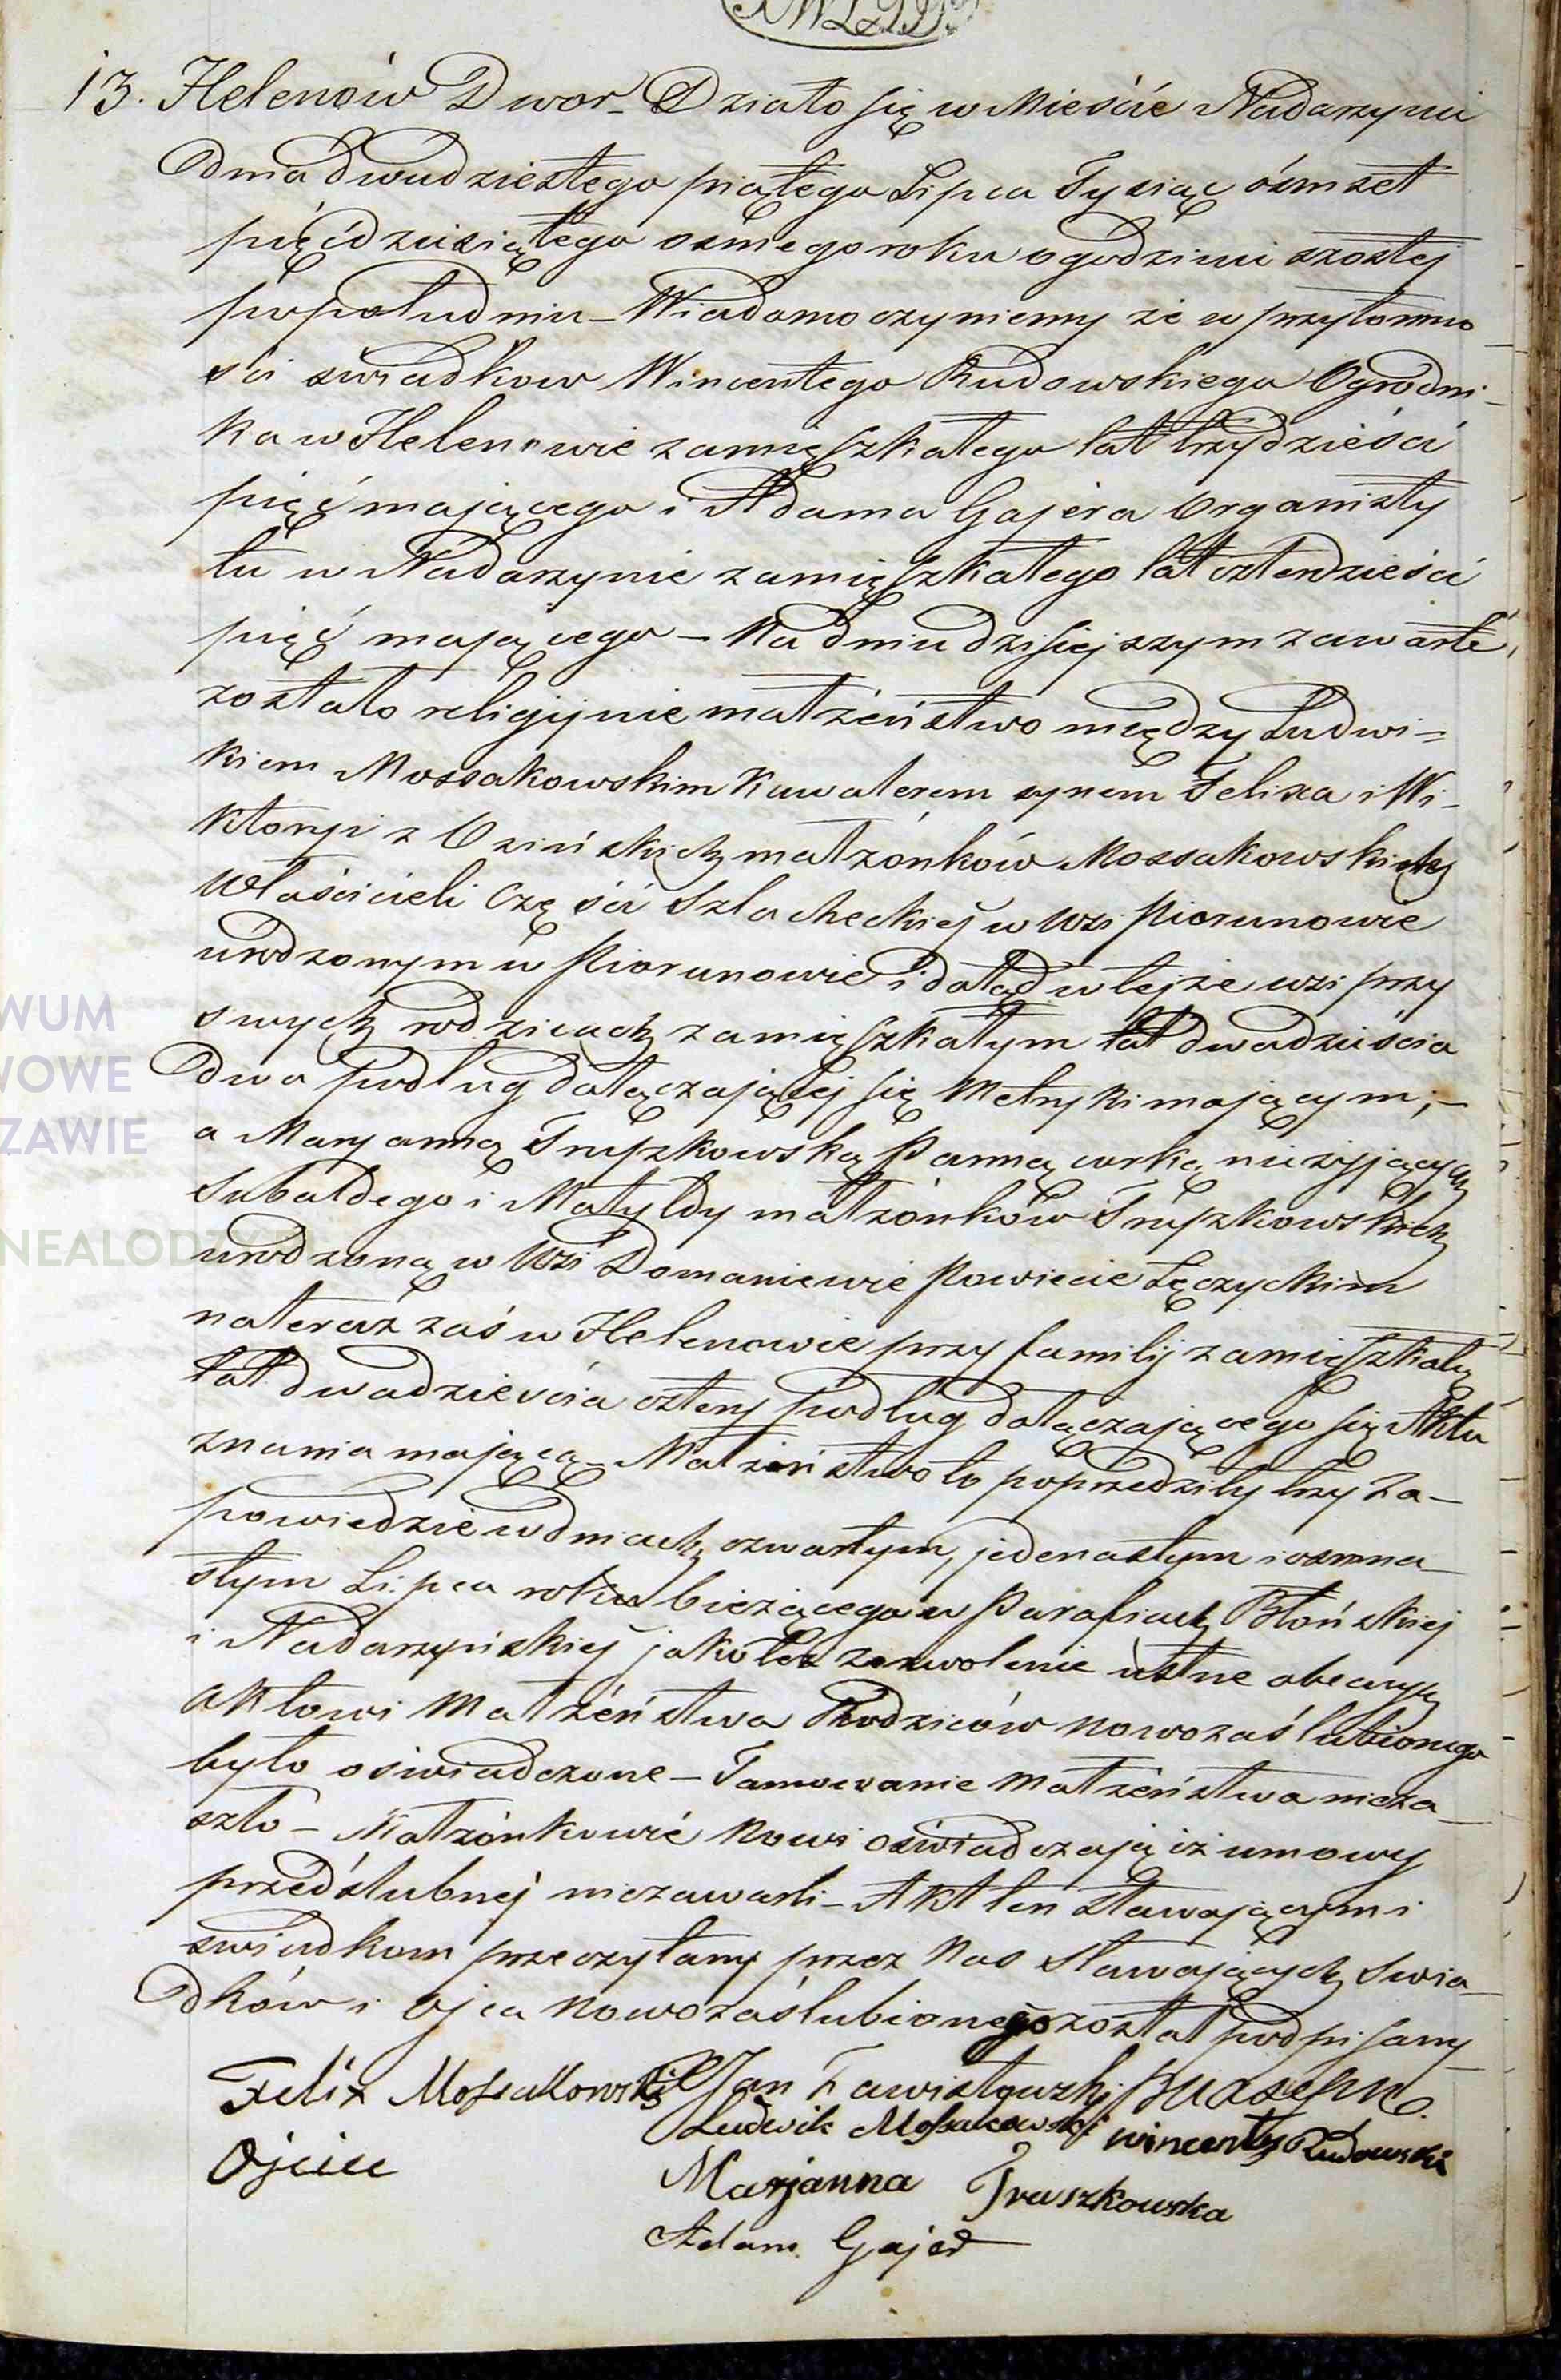 13. Helenów Dwor_ Działo się w Mieście Nadarzyni
Dnia dwudziestego piątego Lipca Tysiąc ósmset
pięćdziesiątego osmego roku o godzinie szostej
popołudniu – Wiadomo czyniemy że w przytomno
ści świadkow Wincentego Rudowskiego Ogrodni-
ka w Helenowie zamięszkałego lat trzydzieści
pięć mającego i Adama Gajera Organisty
tu w Nadarzynie zamięszkałego lat czterdzieści
pięć mającego – Na dniu dzisiejszym zawarte
zostało religijnie małżeństwo między Ludwi=
kiem Mossakowskim Kawalerem synem Felixa i Wi-
ktoryi z Ozińskich małżonków Mossakowskich
Właścicieli Części Szlacheckiej w Wsi Piorunowie
urodzonym w Piorunowie i dotąd w tejże wsi przy
swych rodzicach zamięszkałym lat dwadzieścia
dwa podług dołączającej się Metryki mającym; –
a Maryanną Truszkowską Panną corką nieżyjących
Subaldego i Matyldy małżonków Truszkowskich
urodzoną w Wsi Domaniewie Powiecie Łęczyckim
nateraz zaś w Helenowie przy familij zamięszkałą
lat dwadzieścia cztery podług dołączającego się Aktu
znania mającą – Małżeństwo to poprzedziły trzy Za-
powiedzie w dniach czwartym, jedenastym i osmna-
stym Lipca roku bieżącego w Parafiach Błońskiej
i Nadarzyńskiej jakoteż zezwolenie ustne obecnych
aktowi Małżeństwa Rodziców nowozaślubionego
było oświadczone – Tamowanie Małżeństwa nieza-
szło – Małżonkowie Nowi oświadczają iż umowy
przedślubnej niezawarli – Akt ten stawającym i
swiadkom przeczytany przez Nas Stawających Swia-
dków i Ojca Nowozaślubionego został podpisany –
Felix Mossakowski X Jan
Ojciec Ludwik Mossakowski Wincenty Rudowski
Marjanna Truszkowska
Adam Gajer
WUM
WOWE
ZAWIE
NEALODZY